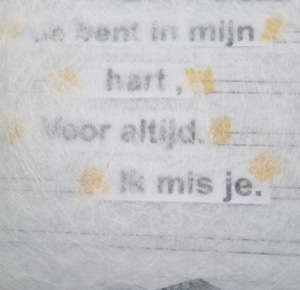 Je bent in mijn
hart ,
Voor altijd.
Ik mis je.